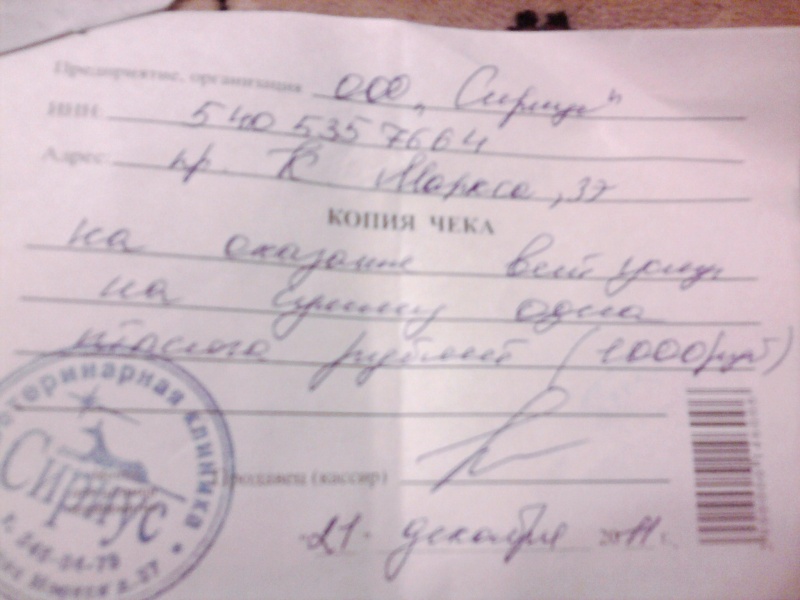 Предприятие, организация ООО „Сириус"
ИНН 5405357664
Адрес: пр. К Маркса, 37
КОПИЯ ЧЕКА
на оказание вет услуг
на сумму одна
тысяча рублей (1000 руб)
Продавец (кассир)
21 декабря 2011 г.
ветеринарная клиника
Сириус